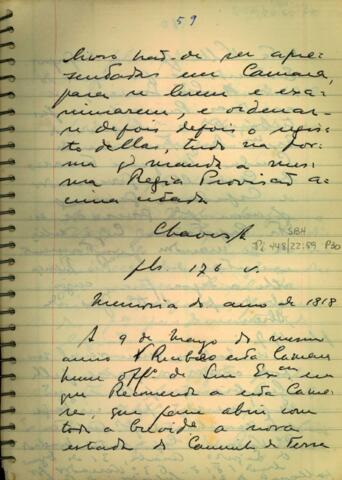 59
livros hao-de ser apre-
sentadas em Camara,
para se lerem e exa-
minarem, e ordenar-
se depois depois o regis-
to dellas, tudo na for-
ma q manda a mes-
ma Regia Provisaõ a-
cima citada
Chaves
SBH
Pi 448/22:59 P30
fls 176 v.
Memoria do anno de 1818
A 9 de Março do mesmo
anno Recebeo esta Camara
hum off.º de Sua Ex.cia em
que Recomenda a esta Came-
ra, que faça abrir com
toda a brevid.e a nova
estrada do Caminho de Terra